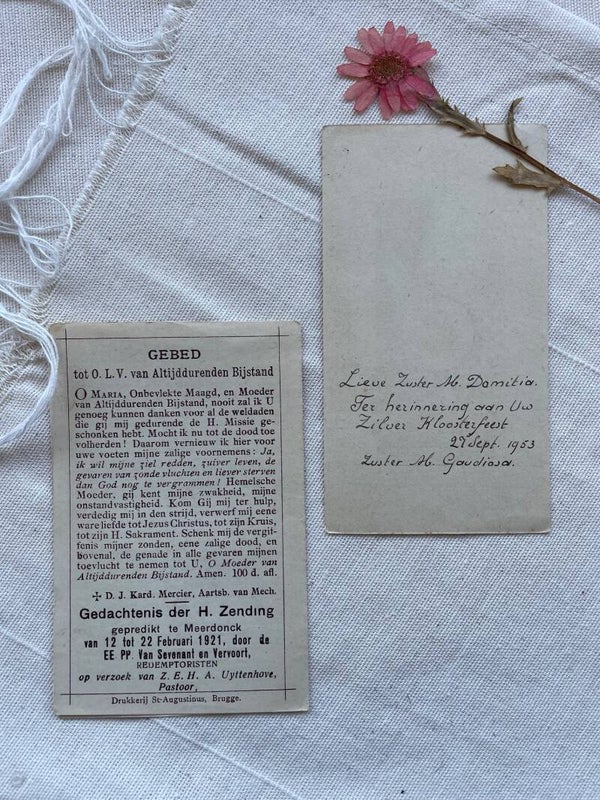 GEBED
tot O. L. V. van Altijddurenden Bijstand
O MARIA, Onbevlekte Maagd, en Moeder
van Altijddurenden Bijstand, nooit zal ik U
genoeg kunnen danken voor al de weldaden
die gij mij gedurende de H. Missie ge-
schonken hebt. Mocht ik nu tot de dood toe
volherden! Daarom vernieuw ik hier voor
uwe voeten mijne zalige voornemens: Ja,
ik wil mijne ziel redden, zuiver leven, de
gevaren van zonde vluchten en liever sterven
dan God nog te vergrammen! Hemelsche
Moeder, gij kent mijne zwakheid, mijne
onstandvastigheid. Kom Gij mij ter hulp,
verdedig mij in den strijd, verwerf mij eene
ware liefde tot Jezus Christus, tot zijn Kruis,
tot zijn H. Sakrament. Schenk mij de vergif-
fenis mijner zonden, eene zalige dood, en
bovenal, de genade in alle gevaren mijnen
toevlucht te nemen tot U, O Moeder van
Altijddurenden Bijstand. Amen. 100 d. afl.
✢ D. J. Kard. Mercier, Aartsb. van Mech.
Gedachtenis der H. Zending
gepredikt te Meerdonck
van 12 tot 22 Februari 1921, door de
EE PP. Van Sevenant en Vervoort,
REDEMPTORISTEN
op verzoek van Z. E. H. A. Uyttenhove,
Pastoor,
Drukkerij St-Augustinus, Brugge.
Lieve Zuster M. Domitia.
Ter herinnering aan Uw
Zilver Kloosterfeest
29 Sept. 1953
Zuster M. Gaudiosa.